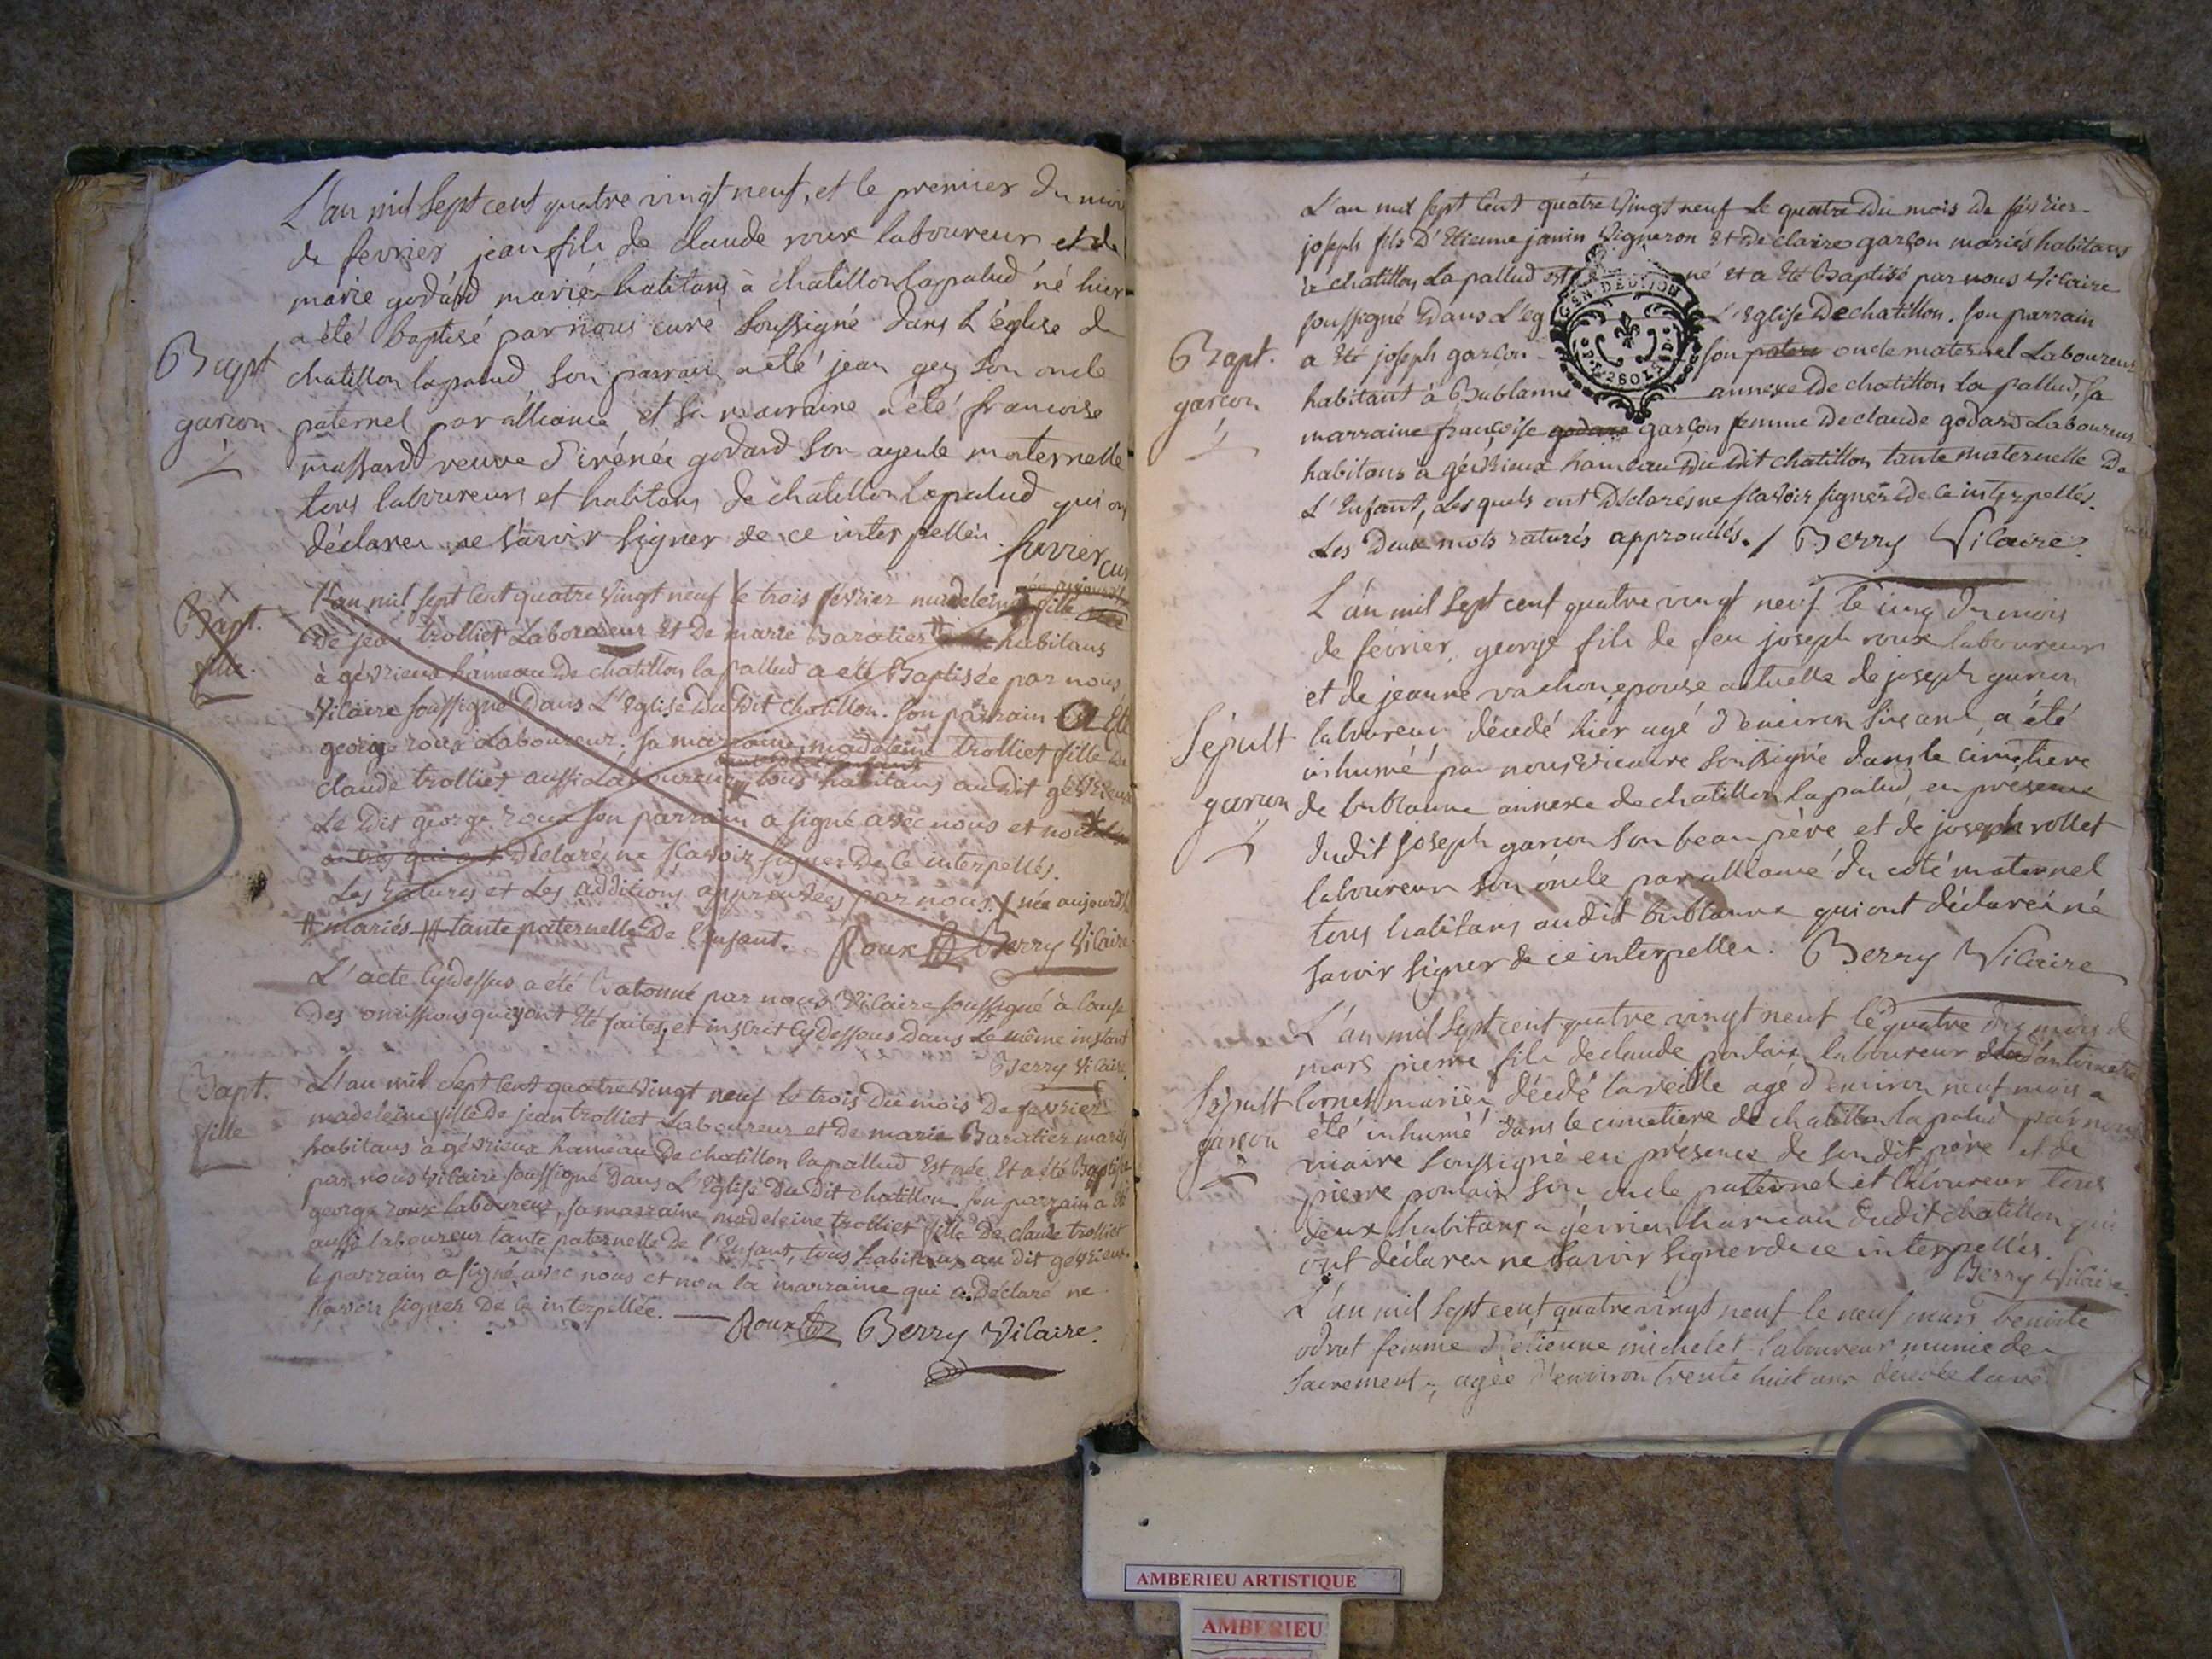 L'an mil sept cent quatre vingt neuf, et le premier du mois
de fevrier jean fils de claude roux laboureur et de
marie godard mariés habitans à chatillon lapalud né hier
a été baptisé par nous curé soussigné dans l'église de
Bapt
garçon
chatillon lapalud son parrain a été jean gey son oncle
paternel par alliance et sa marraine a été françoise
massard veuve d'irénée godard son ayeule maternelle
tous laboureurs et habitans de chatillon lapalud qui ont
déclarer ne sàvoir signer de ce interpellés.
curé
Bapt.
fille.
L'an mil sept Cent quatre Vingt neuf le trois février madeleine fille
De jean trolliet Laboureur et De marie Baratier habitans
à gévrieux hameau De chatillon la pallud a été Baptisée par nous
Vicaire soussigné Dans L'Eglise Du Dit chatillon. son parrain a Eté
george roux Laboureur. sa marraine madeleine trolliet fille De
claude trolliet aussi Laboureur tous habitans au Dit gévrieux
Le Dit george roux son parrain a signé avec nous et non
autres qui ont Déclarés ne sçavoir signer De Ce interpellés.
Les ratures et Les additions approuvées par nous. née aujourd'h
# mariés # tante paternelle De l'Enfant. Roux Berry Vicaire
L'acte Cydessus a été Batonné par nous Vicaire soussigné à Cause
Des omissions qui y ont Eté faites, et inscrit Cydessous Dans Le même instant
Berry Vicaire
Bapt.
fille
L'an mil Sept Cent quatre Vingt neuf le trois Du mois De fevrier
madeleine fille De jean trolliet Laboureur et De marie Baratier mariés
habitans à gévrieux hameau De chatillon la pallud Est née Et a été Baptisée
par nous Vicaire soussigné Dans L'Eglise Du Dit chatillon. son parrain a Eté
george roux laboureur, sa marraine madeleine trolliet fille De claude trolliet
aussi laboureur tante paternelle de l'Enfant, tous habitans au dit gevrieux.
le parrain a signé avec nous et non la marraine qui a Déclaré ne
sçavoir signer De Ce interpellée. Roux Berry Vicaire.
L'an mil sept Cent quatre Vingt neuf Le quatre Du mois De février
joseph fils D'Etienne janin Vigneron Et De claire garçon mariés habitans
à chatillon La pallud est né Et a Eté Baptisé par nous Vicaire
GEN. DE DIJON
soussigné Dans L'Eg L'Eglise De chatillon. son parrain
Bapt.
garçon
a Eté joseph garçon son oncle maternel Laboureur
habitant à Bublanne annexe De chatillon la pallud, sa
marraine françoise godard garçon femme De claude godard Laboureur
habitans à gévrieux hameau Du Dit chatillon tante maternelle De
L'Enfant, Lesquels ont Déclarés ne sçavoir signer De Ce interpellés.
Les Deux mots raturés approuvés. / Berry Vicaire.
L'an mil sept cent quatre vingt neuf le cinq du mois
de février, george fils de feu joseph roux laboureur
et de jeanne vachon, epouse actuelle de joseph garçon
Sépult
garçon
laboureur décedé hier agé d'environ six ans, a été
inhumé par nous vicaire soussigné dans le cimetiere
de bublanne annexe de chatillon lapalud en présence
dudit joseph garçon son beau père et de joseph rollet
laboureur son oncle par alliance du coté maternel
tous habitans audit bublanne qui ont déclarés né
savoir signer de ce interpellés. Berry Vicaire
L'an mil Sept cent quatre vingt neuf le quatre du mois de
mars pierre fils de claude poulain laboureur d'antoinette
Sépult
garçon
cornet mariés décédé la veille agé d'environ neuf mois a
été inhumé dans le cimetiere de chatillon la palud par nous
vicaire soussigné en présence de son dit père et de
pierre poulain son oncle paternel et laboureur tous
deux habitans a gévrieu hameau dudit chatillon qui
ont déclarer ne savoir signer de ce interpellés.
Berry Vicaire.
L'an mil sept cent quatre vingt neuf le neuf mars benoite
femme d'etienne michelet laboureur munie des
sacrements, agée d'environ trente huit ans décédée
AMBERIEU ARTISTIQUE
AMBERIEU